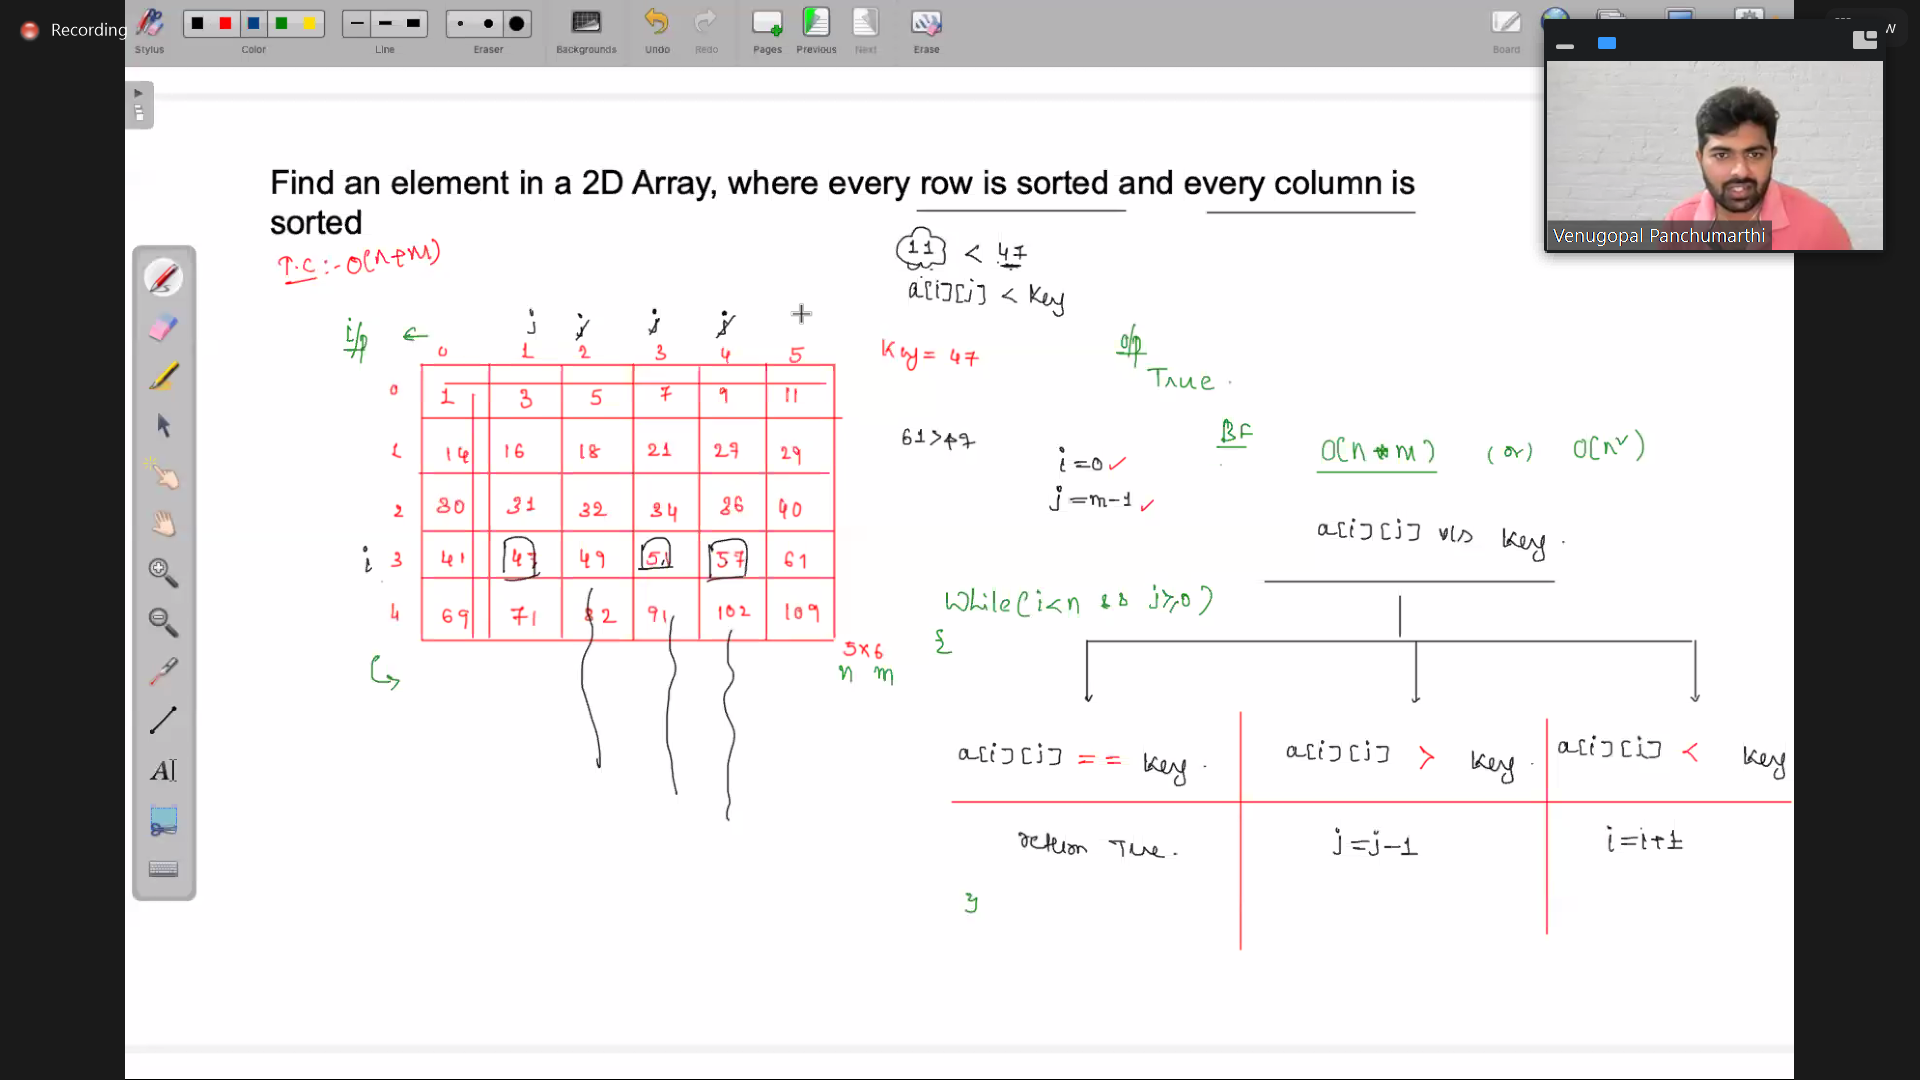 Recording
Stylus Color Line Eraser Backgrounds Undo Redo Pages Previous Next Erase Board
Venugopal Panchumarthi
Find an element in a 2D Array, where every row is sorted and every column is
sorted
T.C :- O(n+m)
11 < 47
a[i][j] < Key
i/p ←
j j j j
0 1 2 3 4 5
Key = 47
o/p
True.
0 1 3 5 7 9 11
1 14 16 18 21 27 29
2 30 31 32 34 36 40
i 3 41 47 49 51 57 61
4 69 71 82 91 102 109
5×6
n m
61>47
i=0 ✓
j=m-1 ✓
BF
O(n*m) (or) O(n²)
a[i][j] v/s Key.
While(i<n && j>=0)
{
a[i][j] == Key.
a[i][j] > Key.
a[i][j] < Key
return True.
j=j-1
i=i+1
}